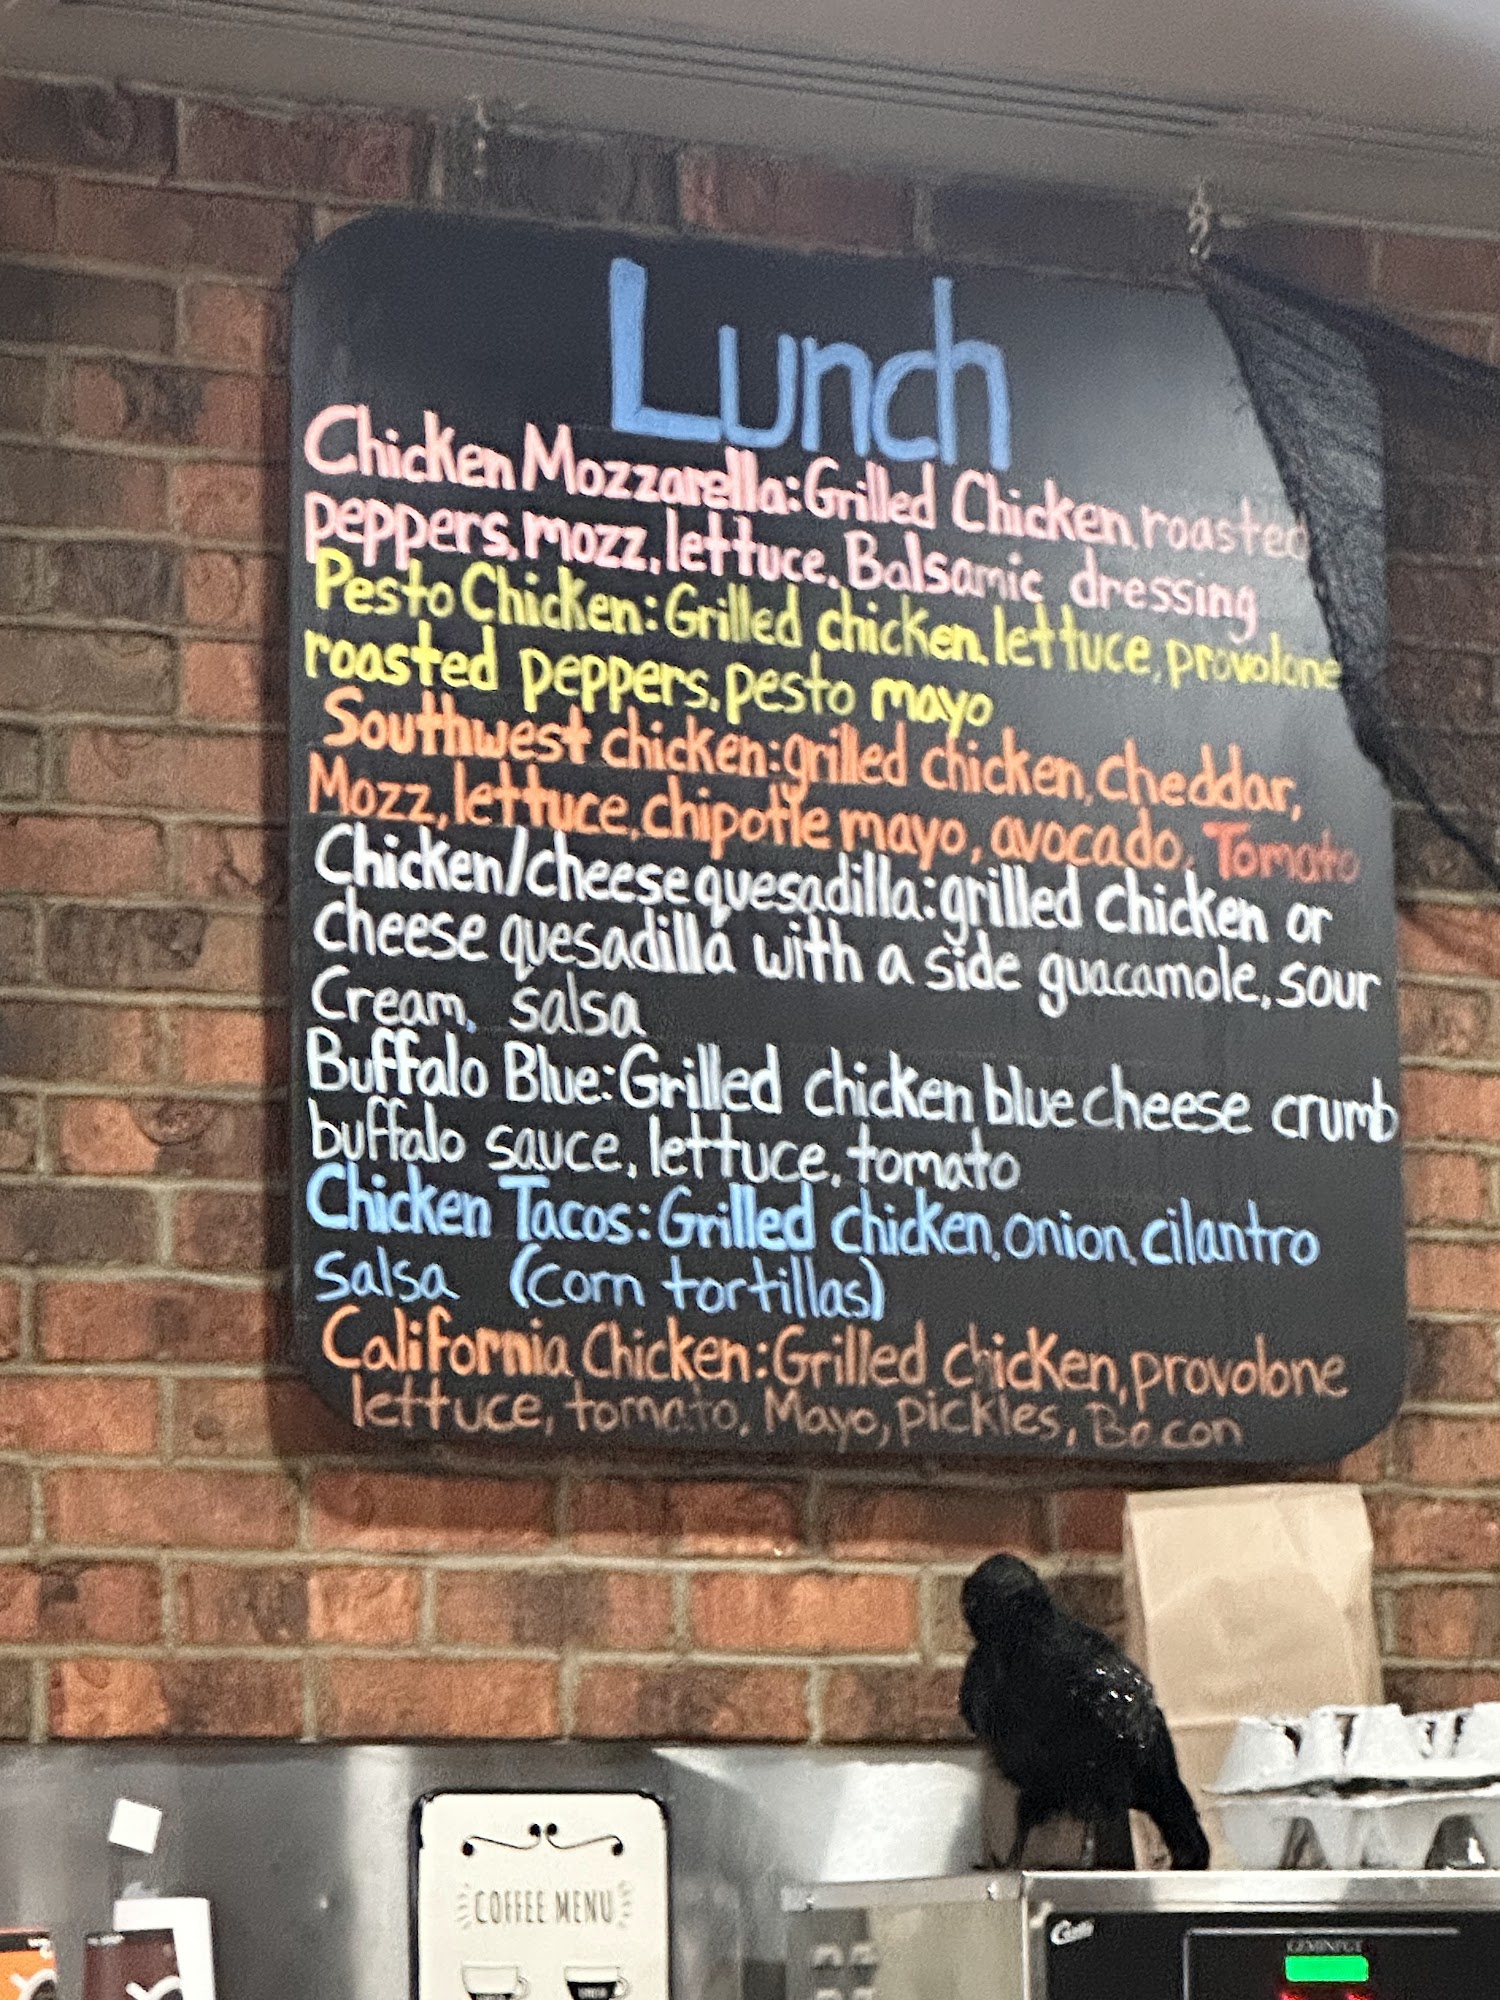 Lunch
Chicken Mozzarella: Grilled Chicken, roasted
peppers, mozz, lettuce, Balsamic dressing
Pesto Chicken: Grilled chicken, lettuce, provolone
roasted peppers, pesto mayo
Southwest chicken: grilled chicken, cheddar,
Mozz, lettuce, chipotle mayo, avocado, Tomato
Chicken/cheese quesadilla: grilled chicken or
cheese quesadilla with a side guacamole, sour
Cream, salsa
Buffalo Blue: Grilled chicken blue cheese crumb
buffalo sauce, lettuce, tomato
Chicken Tacos: Grilled chicken, onion, cilantro
salsa (corn tortillas)
California Chicken: Grilled chicken, provolone
lettuce, tomato, Mayo, pickles, Bacon
COFFEE MENU
Curtis